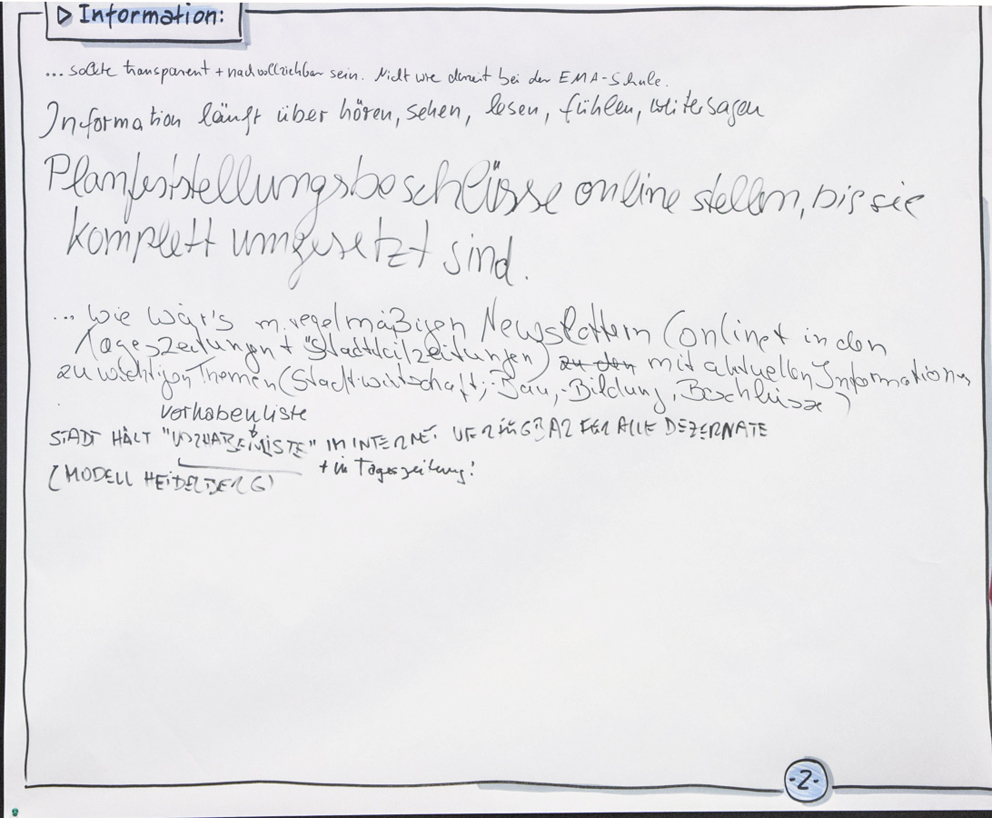 ▷ Information:
... sollte transparent + nachvollziehbar sein. Nicht wie derzeit bei der EMA-Schule.
Information läuft über hören, sehen, lesen, fühlen, weitersagen
Planfeststellungsbeschlüsse online stellen, bis sie
komplett umgesetzt sind.
... wie wär's m. regelmäßigen Newslettern (online + in den
Tageszeitungen + "Stadtteilzeitungen) zu den mit aktuellen Informationen
zu wichtigen Themen (Stadtwirtschaft, -Bau, -Bildung, Beschlüsse)
Vorhabenliste
STADT HÄLT "VORHABENLISTE" IM INTERNET VERFÜGBAR FÜR ALLE DEZERNATE
+ in Tageszeitung!
(MODELL HEIDELBERG)
-2-